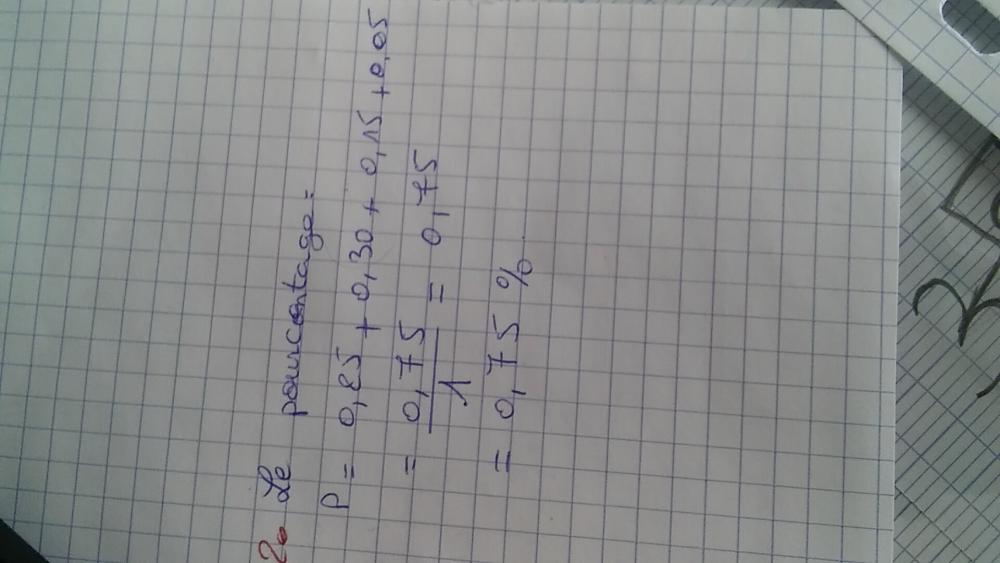 2. Le pourcentage:
P = 0,25 + 0,30 + 0,15 + 0,05
= 0,75/1 = 0,75
= 0,75 %